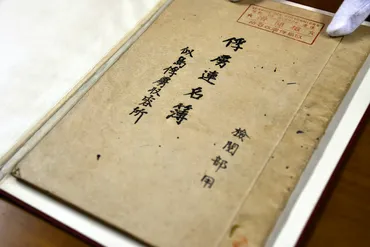 俘虜連名簿
似島俘虜收容所
検閲部用